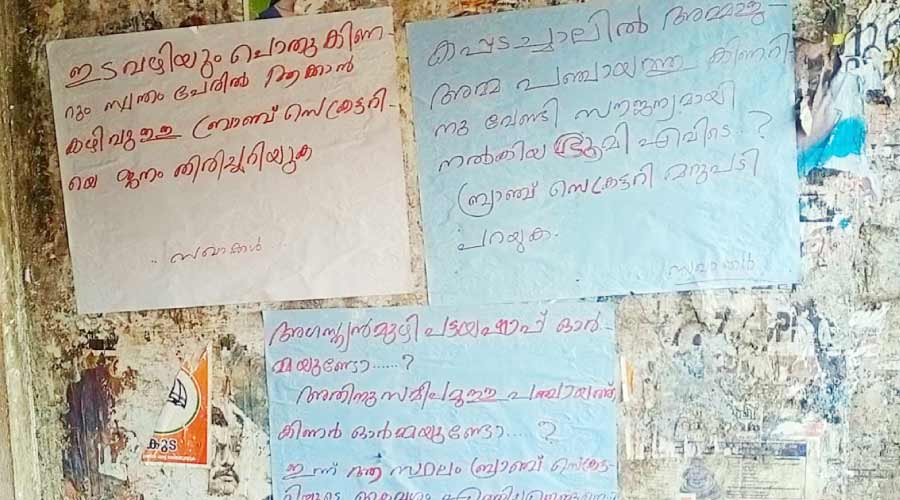 ഇടവഴിയും പൊതു കിണ-
റും സ്വന്തം പേരിൽ ആക്കാൻ
കഴിവുള്ള ബ്രാഞ്ച് സെക്രട്ടറി-
യെ ജനം തിരിച്ചറിയുക
സഖാക്കൾ
കപ്പടച്ചാലിൽ അമ്മാളു-
അമ്മ പഞ്ചായത്തു കിണറി-
നു വേണ്ടി സൗജന്യമായി
നൽകിയ ഭൂമി എവിടെ..?
ബ്രാഞ്ച് സെക്രട്ടറി മറുപടി
പറയുക.
സഖാക്കൾ
അഗസ്ത്യൻമുഴി പട്ടയഷാപ്പ് ഓർ-
മ്മയുണ്ടോ......?
അതിനു സമീപമുള്ള പഞ്ചായത്ത്
കിണർ ഓർമ്മയുണ്ടോ.... ?
ഇന്ന് ആ സ്ഥലം ബ്രാഞ്ച് സെക്രട്ട-
കുട